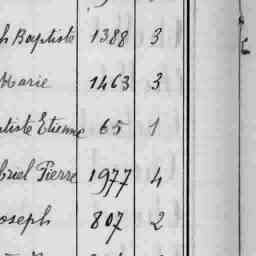 h Baptiste 1388 3
Marie 1463 3
tiste Etienne 65 1
briel Pierre 1977 4
oseph 807 2